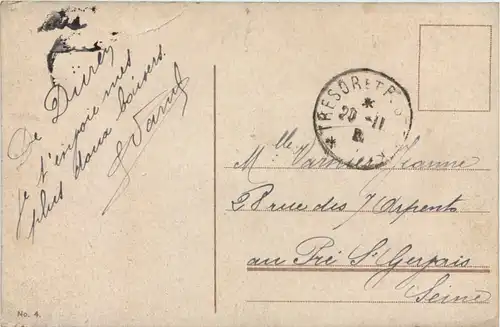 De Düren
Je t'envoie mes
plus doux baisers.
TRESOR ET P
20 - 11
Mlle Jeanne
28 rue des 7 Arpents
au Pré St Gervais
Seine
No. 4.